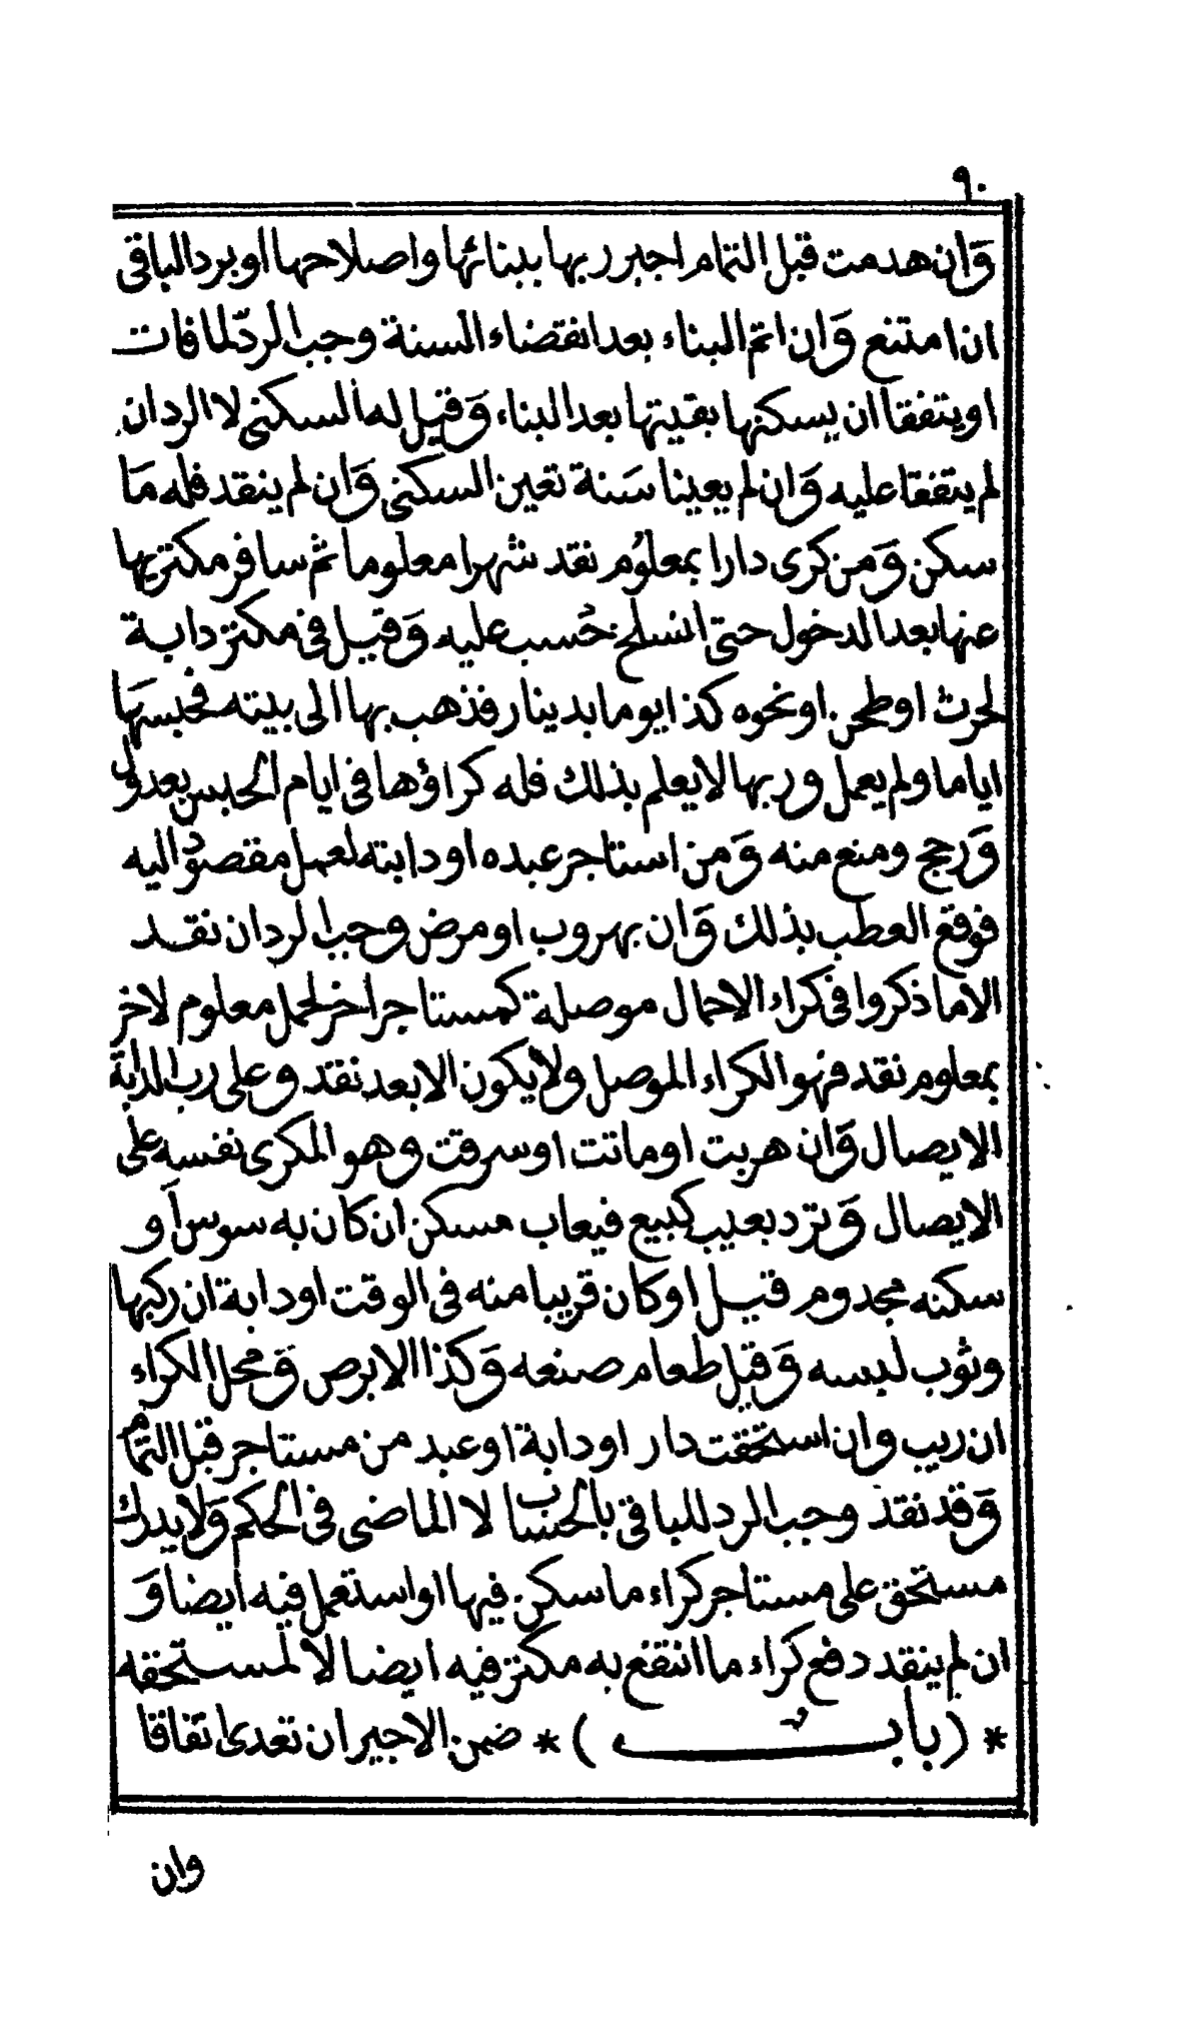 ٩٠
وَان هدمت قبل التمام اجبر ربها ببنائها واصلاحها او برد الباقى
ان امتنع وَان اتم البناء بعد انقضاء السنة وجب الردّ لما فات
او يتفقا ان يسكنها بقيتها بعد البناء وَقيل له السكنى لا الرد ان
لم يتفقا عليه وَان لم يعينا سَنة تعين السكنى وَان لم ينقد فله مَا
سكن وَمن كرى دارا بمعلوُم نقد شهرا معلوما ثم سافر مكتريها
عنها بعد الدخول حتى انسلخ حُسب عليه وَقيل فى مكتر دابة
لحرث او طحن او نحوه كذا يوما بدينار فذهب بها الى بيته فحبسهَا
اياما ولم يعمل وربها لا يعلم بذلك فله كراؤها فى ايام الحبس بعدول
وَرجح ومنع منه وَمن استاجر عبده او دابته لعمل مقصوُد اليه
فوقع العطب بذلك وَان بهروب او مرض وجب الرد ان نقد
الا ما ذكروا فى كراء الاحمال موصلة كمستاجر اخر لحمل معلوم لاخر
بمعلوم نقد فهو الكراء الموصل ولا يكون الا بعد نقد وعلى رب الدابة
الايصال وَان هربت او ماتت او سرقت وهو المكرى نفسه على
الايصال وَترد بعيب كبيع فيعاب مسكن ان كان به سوس اَو
سكنه مجدوم قيل او كان قريبا منه فى الوقت او دابة ان ركبها
وثوب لبسه وَقيل طعام صنعه وَكذا الابرص وَمحل الكراء
ان ريب وان استحقت دار او دابة او عبد من مستاجر قبل التمام
وَقد نقد وجب الرد للباقى بالحساب لا الماضى فى الحكم وَلا يدرك
مستحق على مستاجر كراء ما سكن فيها او استعمل فيه ايضا وَ
ان لم ينقد دفع كراء ما انتفع به مكتر فيه ايضا لا لمستحقه
* (باب) * ضمن الاجير ان تعدى اتفاقا
وان